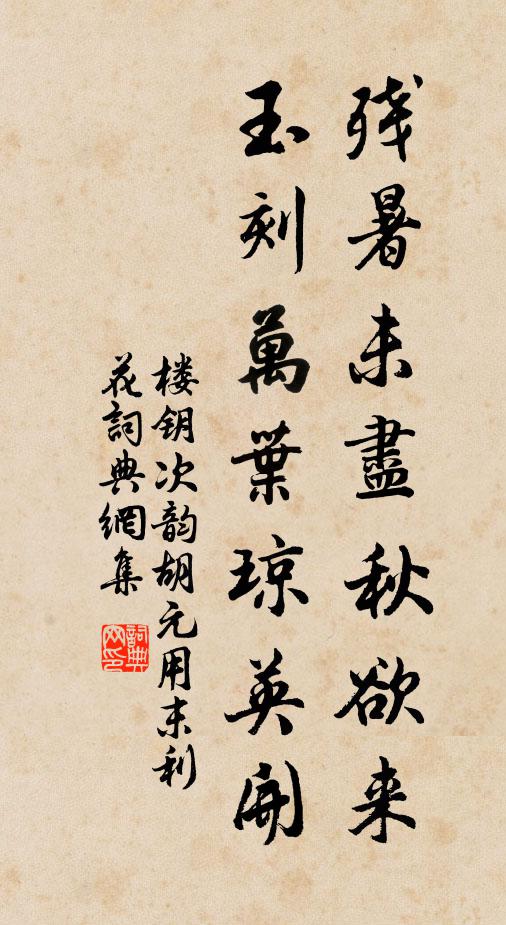 残暑未盡秋欲来
玉刻萬葉琼英開
楼钥次韵胡元用末利
花詞典網集
詞典网印